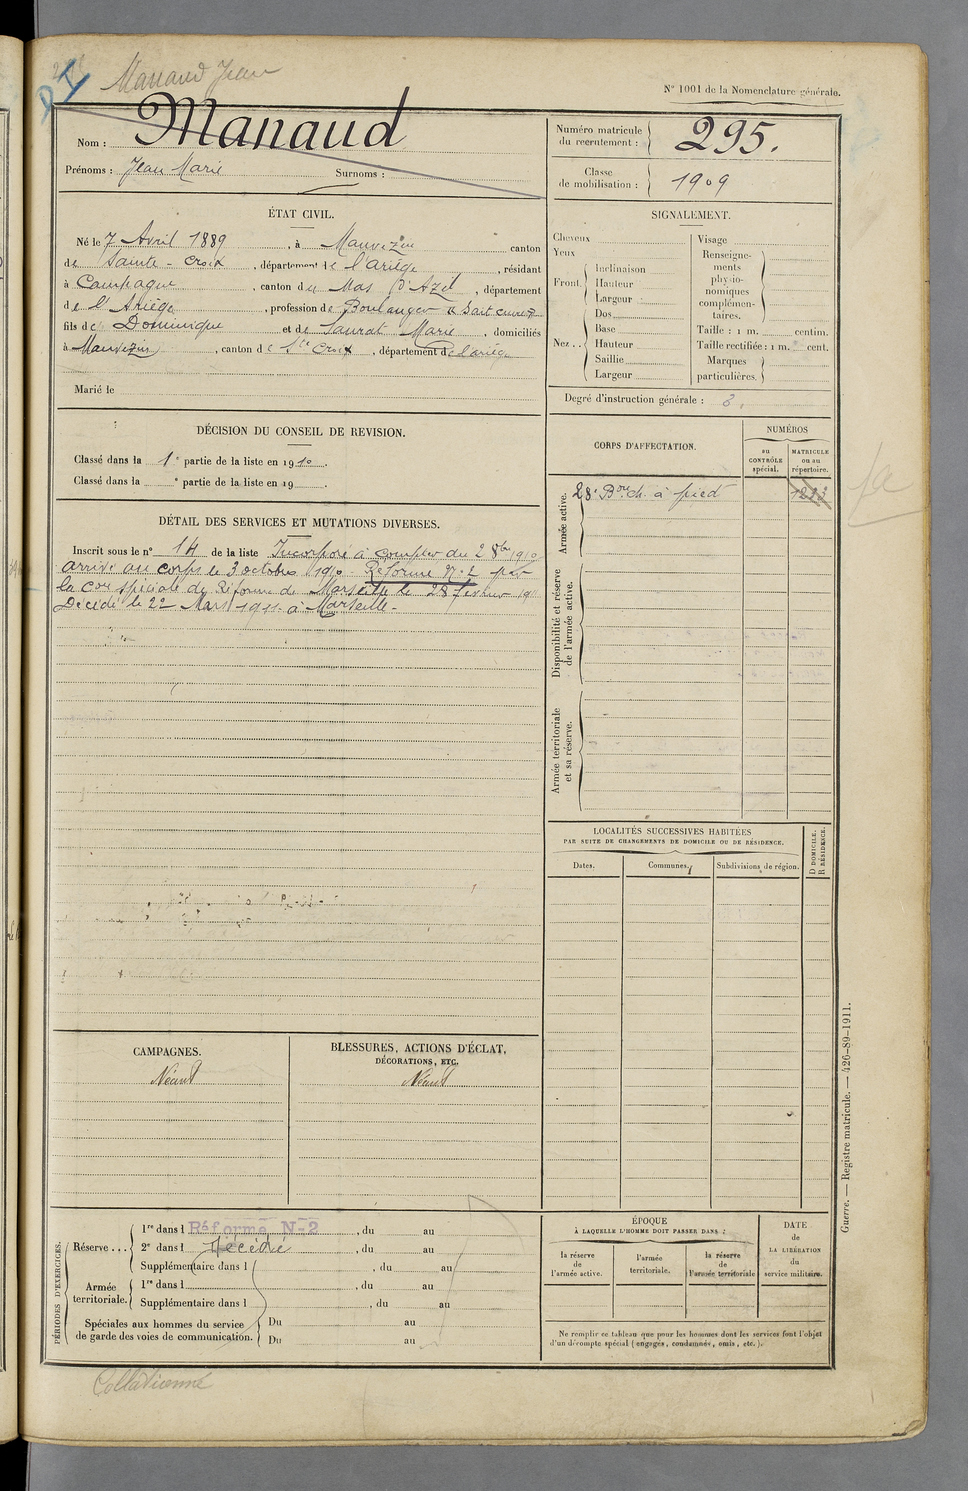 Manaud Jean
N° 1001 de la Nomenclature générale.
Nom : Manaud
Prénoms : Jean Marie Surnoms :
Numéro matricule du recrutement : 295.
Classe de mobilisation : 1909
ÉTAT CIVIL.
Né le 7 Avril 1889, à Mauvezin canton
de Sainte-Croix, département de l'Ariège, résidant
à Campagne, canton du Mas d'Azil, département
de l'Ariège, profession de Boulanger
fils de Dominique et de Saurat Marie, domiciliés
à Mauvezin, canton de Ste Croix, département de l'ariège
Marié le
SIGNALEMENT.
Cheveux
Yeux
Front. Inclinaison
Hauteur
Largeur
Nez.. Dos
Base
Hauteur
Saillie
Largeur
Visage
Renseignements physionomiques complémentaires.
Taille : 1 m. centim.
Taille rectifiée : 1 m. cent.
Marques particulières.
Degré d'instruction générale : 3.
DÉCISION DU CONSEIL DE REVISION.
Classé dans la 1e partie de la liste en 1910.
Classé dans la e partie de la liste en 19 .
CORPS D'AFFECTATION.
NUMÉROS
au CONTRÔLE spécial.
MATRICULE ou au répertoire.
Armée active.
28e Bon ch. à pied
Disponibilité et réserve de l'armée active.
Armée territoriale et sa réserve.
DÉTAIL DES SERVICES ET MUTATIONS DIVERSES.
Inscrit sous le n° 14 de la liste Incorporé à compter du 2 8bre 1910
arrivé au corps le 3 octobre 1910 Réformé N° 2 par
la Con spéciale de Réforme de Marseille le 28 février 1911
Décédé le 22 Mars 1911 à Marseille.
LOCALITÉS SUCCESSIVES HABITÉES
PAR SUITE DE CHANGEMENTS DE DOMICILE OU DE RÉSIDENCE.
D DOMICILE. R RÉSIDENCE.
Dates. Communes. Subdivisions de région.
CAMPAGNES.
Néant
BLESSURES, ACTIONS D'ÉCLAT, DÉCORATIONS, ETC.
Néant
PÉRIODES D'EXERCICES.
Réserve... 1re dans l Réformé N-2, du au
2e dans l Décédé, du au
Supplémentaire dans l , du au
Armée territoriale. 1re dans l , du au
Supplémentaire dans l , du au
Spéciales aux hommes du service de garde des voies de communication. Du au
Du au
ÉPOQUE
À LAQUELLE L'HOMME DOIT PASSER DANS :
la réserve de l'armée active.
l'armée territoriale.
la réserve de l'armée territoriale
DATE de LA LIBÉRATION du service militaire.
Ne remplir ce tableau que pour les hommes dont les services font l'objet
d'un décompte spécial (engagés, condamnés, omis, etc.).
Guerre. — Registre matricule. — 426-89-1911.
Collationné